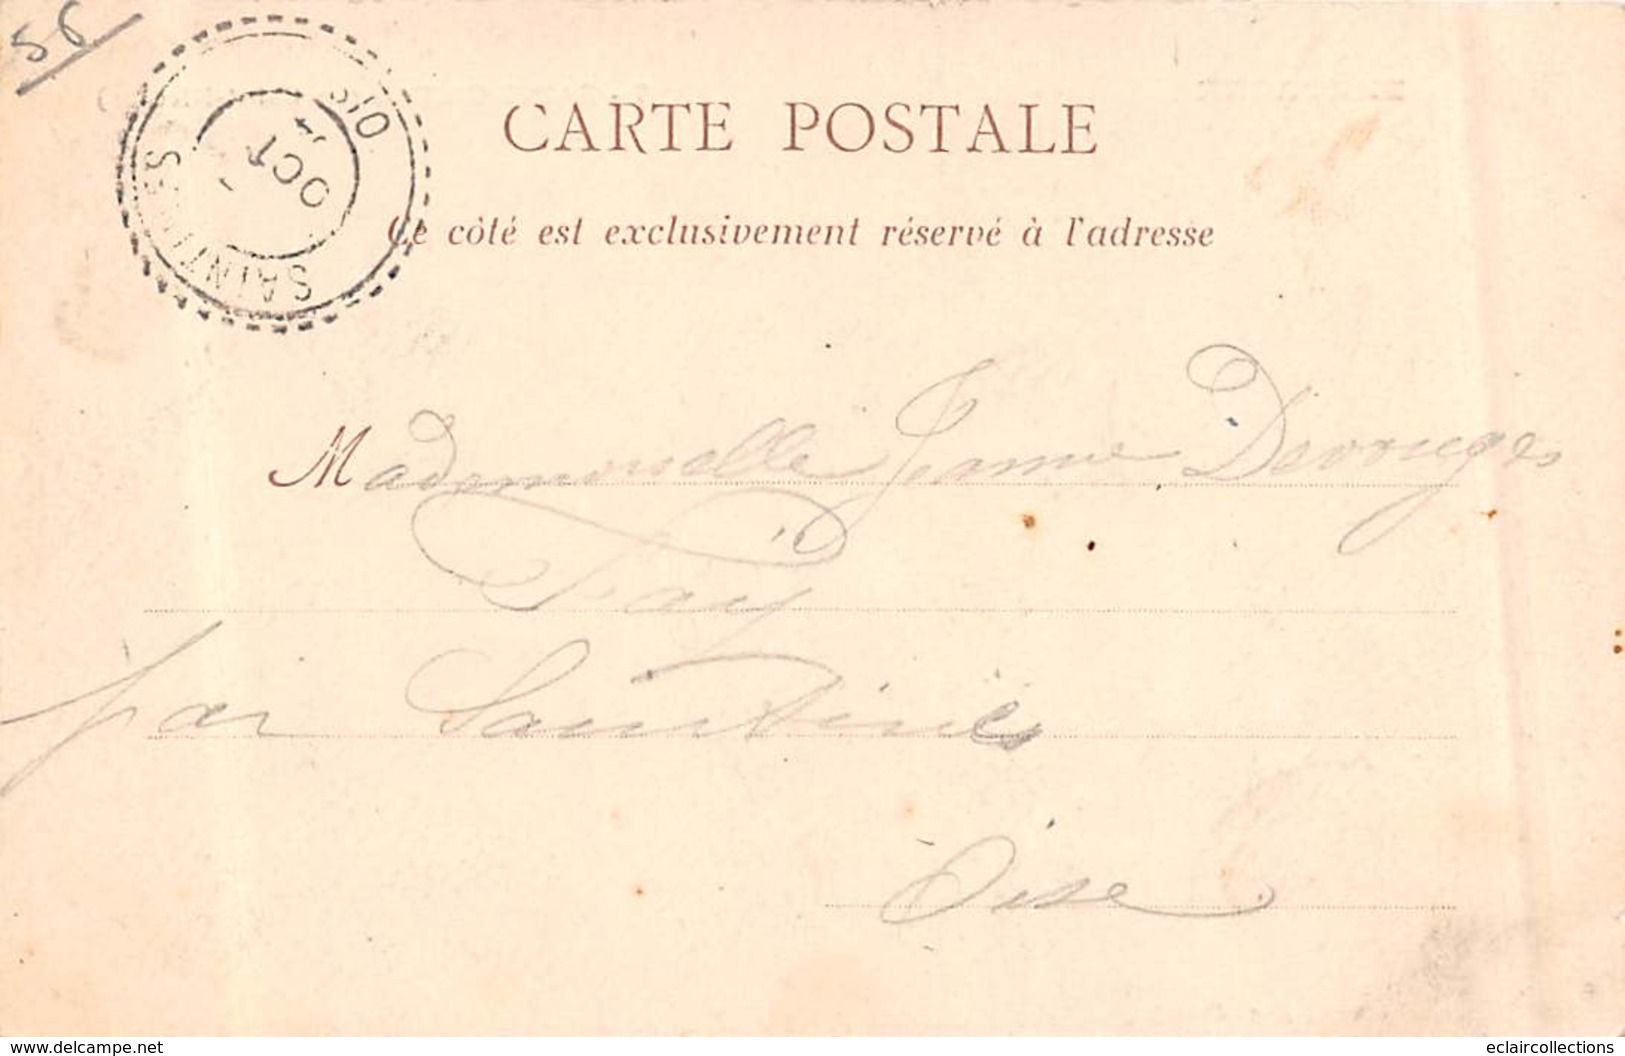 56
SAINTINES
OISE
OCT
CARTE POSTALE
Ce côté est exclusivement réservé à l'adresse
Mademoiselle Jeanne Devouges
Fay
par Saintines
Oise
www.delcampe.net
eclaircollections